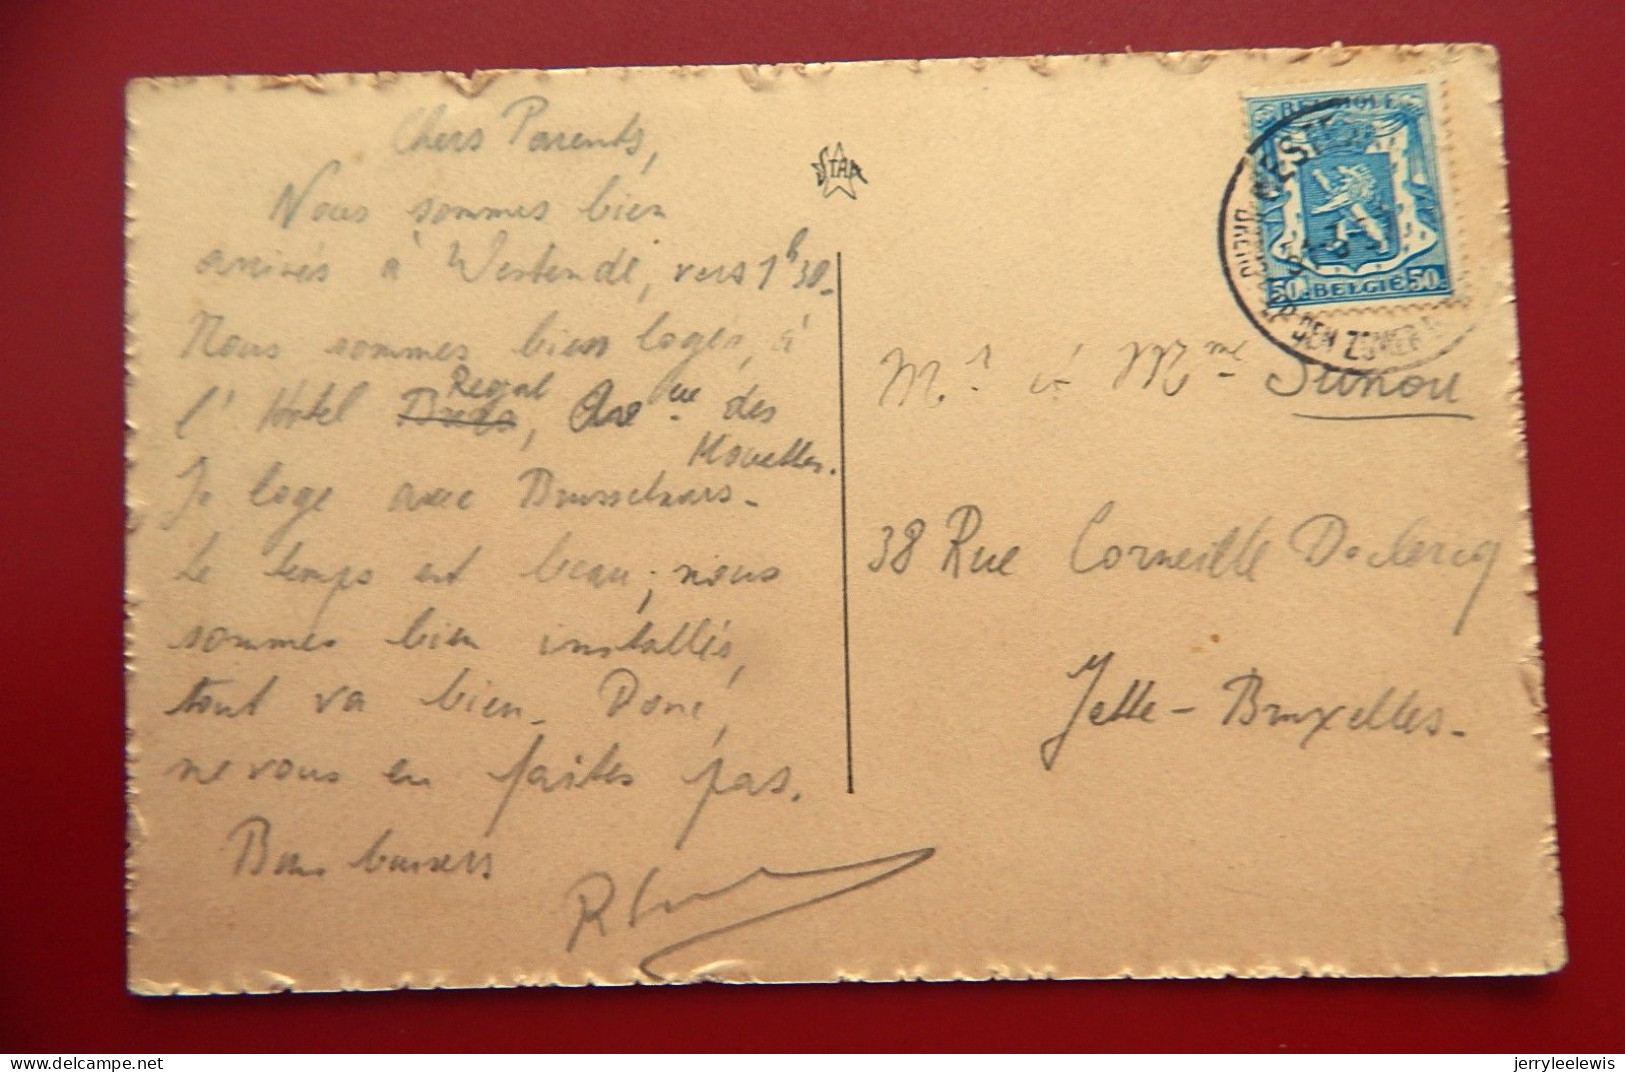 Chers Parents,
Nous sommes bien
arrivés à Westende, vers 1h30.
Nous sommes bien logés, à
l'Hotel Regal, Ave des
Mouettes.
Je loge avec Brusselaars.
Le temps est beau; nous
sommes bien installés,
tout va bien. Donc,
ne vous en faites pas.
Bons baisers
STAR
BELGIQUE
50 BELGIE 50
WESTE
DEN ZOMER
Mr & Mme Sunou
38 Rue Corneille Declercq
Jette-Bruxelles.
jerryleelewis
delcampe.net